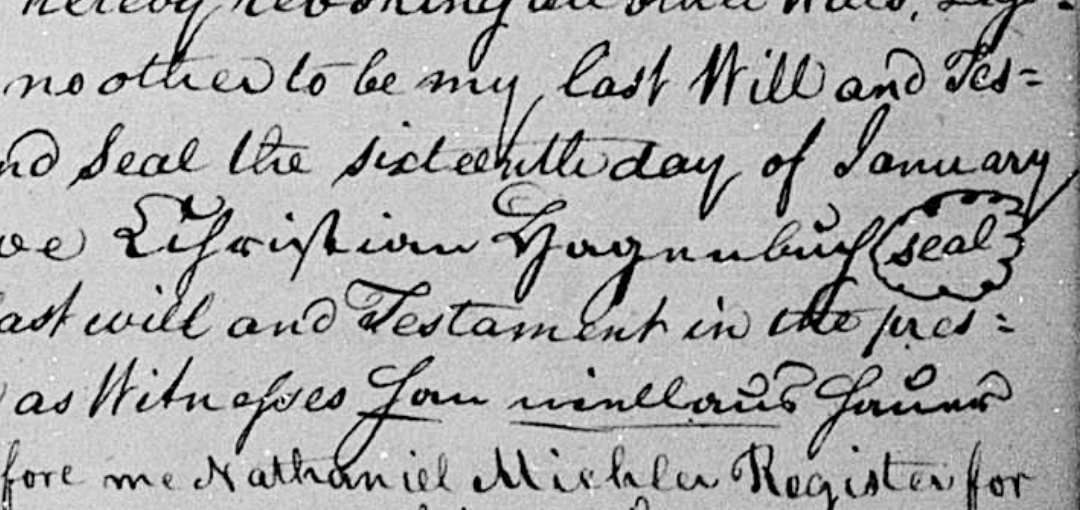 hereby revoking all other Wills,
no other to be my last Will and Tes=
nd Seal the sixteenth day of January
Christian Hagenbuch seal
ast will and Testament in the pres=
as Witnesses
fore me Nathaniel Michler Register for